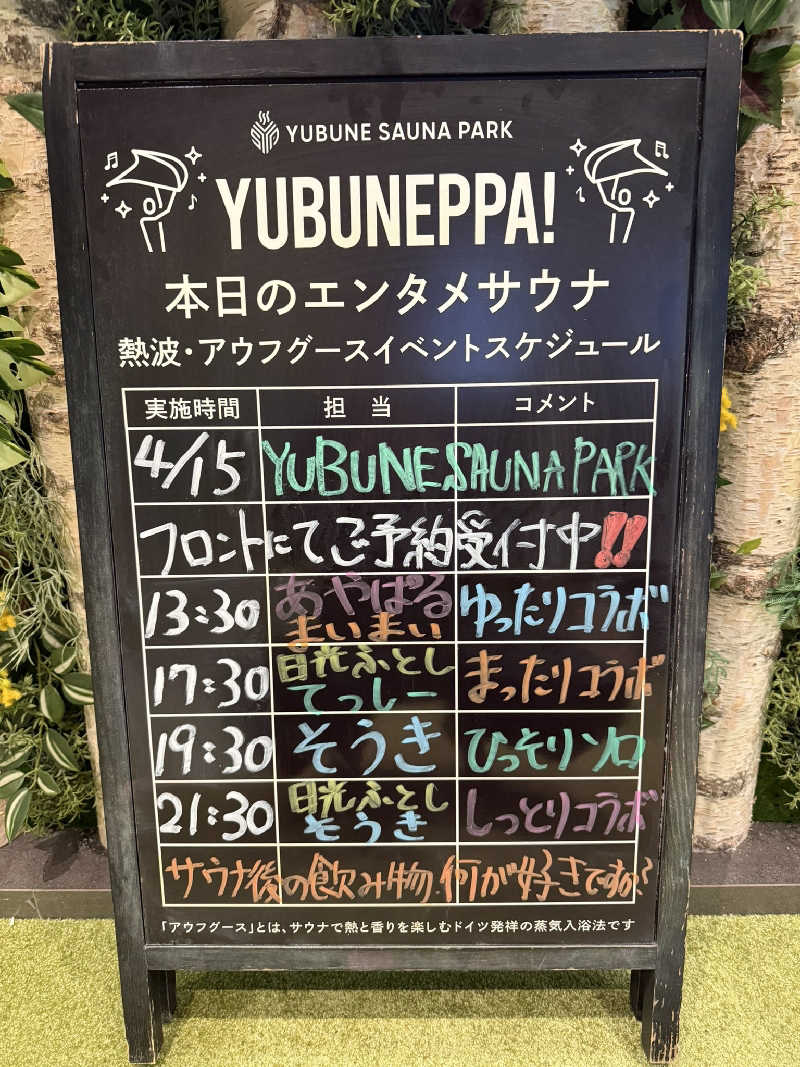 YUBUNE SAUNA PARK
YUBUNEPPA!
本日のエンタメサウナ
熱波・アウフグースイベントスケジュール
実施時間 担当 コメント
4/15 YUBUNE SAUNA PARK
フロントにてご予約受付中!!
13:30 あやぱる まいまい ゆったりコラボ
17:30 日光ふとし てっしー まったりコラボ
19:30 そうき ひっそりソロ
21:30 日光ふとし そうき しっとりコラボ
サウナ後の飲み物、何が好きですか?
「アウフグース」とは、サウナで熱と香りを楽しむドイツ発祥の蒸気入浴法です